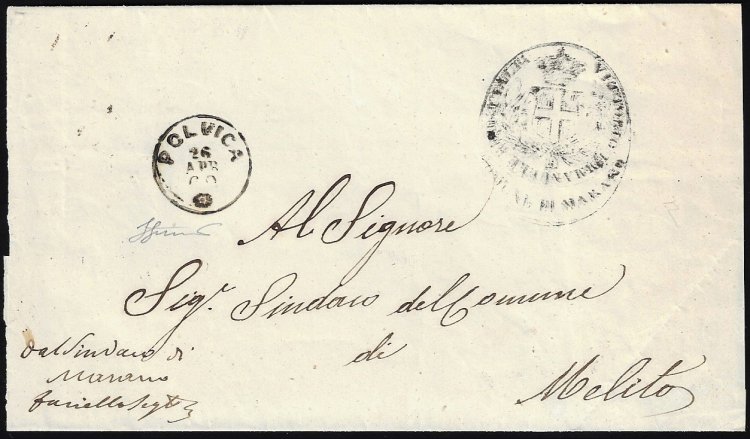 POLVICA
26
APR
VITTORIO EMANUELE
DI MARANO
Al Signore
Sigr. Sindaco del Comune
di
Melito
Dal Sindaco di
Marano